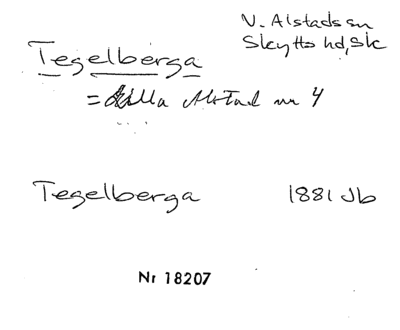 V. Alstads sn
Skytts hd, Sk
Tegelberga
= Lilla Alstad nr 4
Tegelberga 1881 Jb
Nr 18207